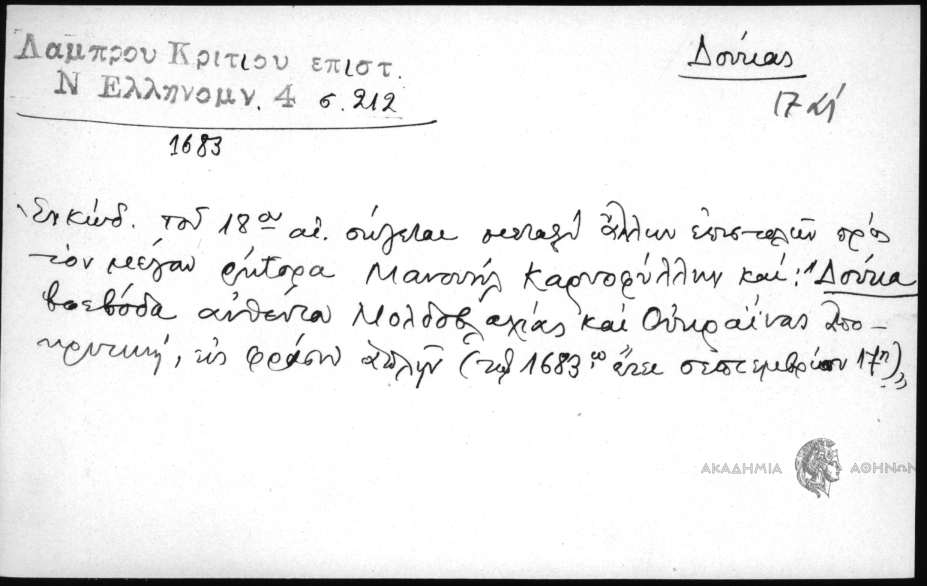 Λαμπρου Κριτιου επιστ.
Ν Ελληνομν. 4 σ. 212
1683
Δούκας
17
Ἐν κώδ. τοῦ 18ου αἰ. σώζεται μεταξὺ ἄλλων ἐπιστολῶν πρὸς
τὸν μέγαν ῥήτορα Μανουὴλ Καρυοφύλλην καί: "Δούκα
βοεβόδα αὐθέντου Μολδοβλαχίας καὶ Οὐκραΐνας ἀπο-
κριτική, εἰς φράσιν ἁπλῆν (τῷ 1683ῳ ἔτει σεπτεμβρίου 17ῃ)"
ΑΚΑΔΗΜΙΑ ΑΘΗΝΩΝ